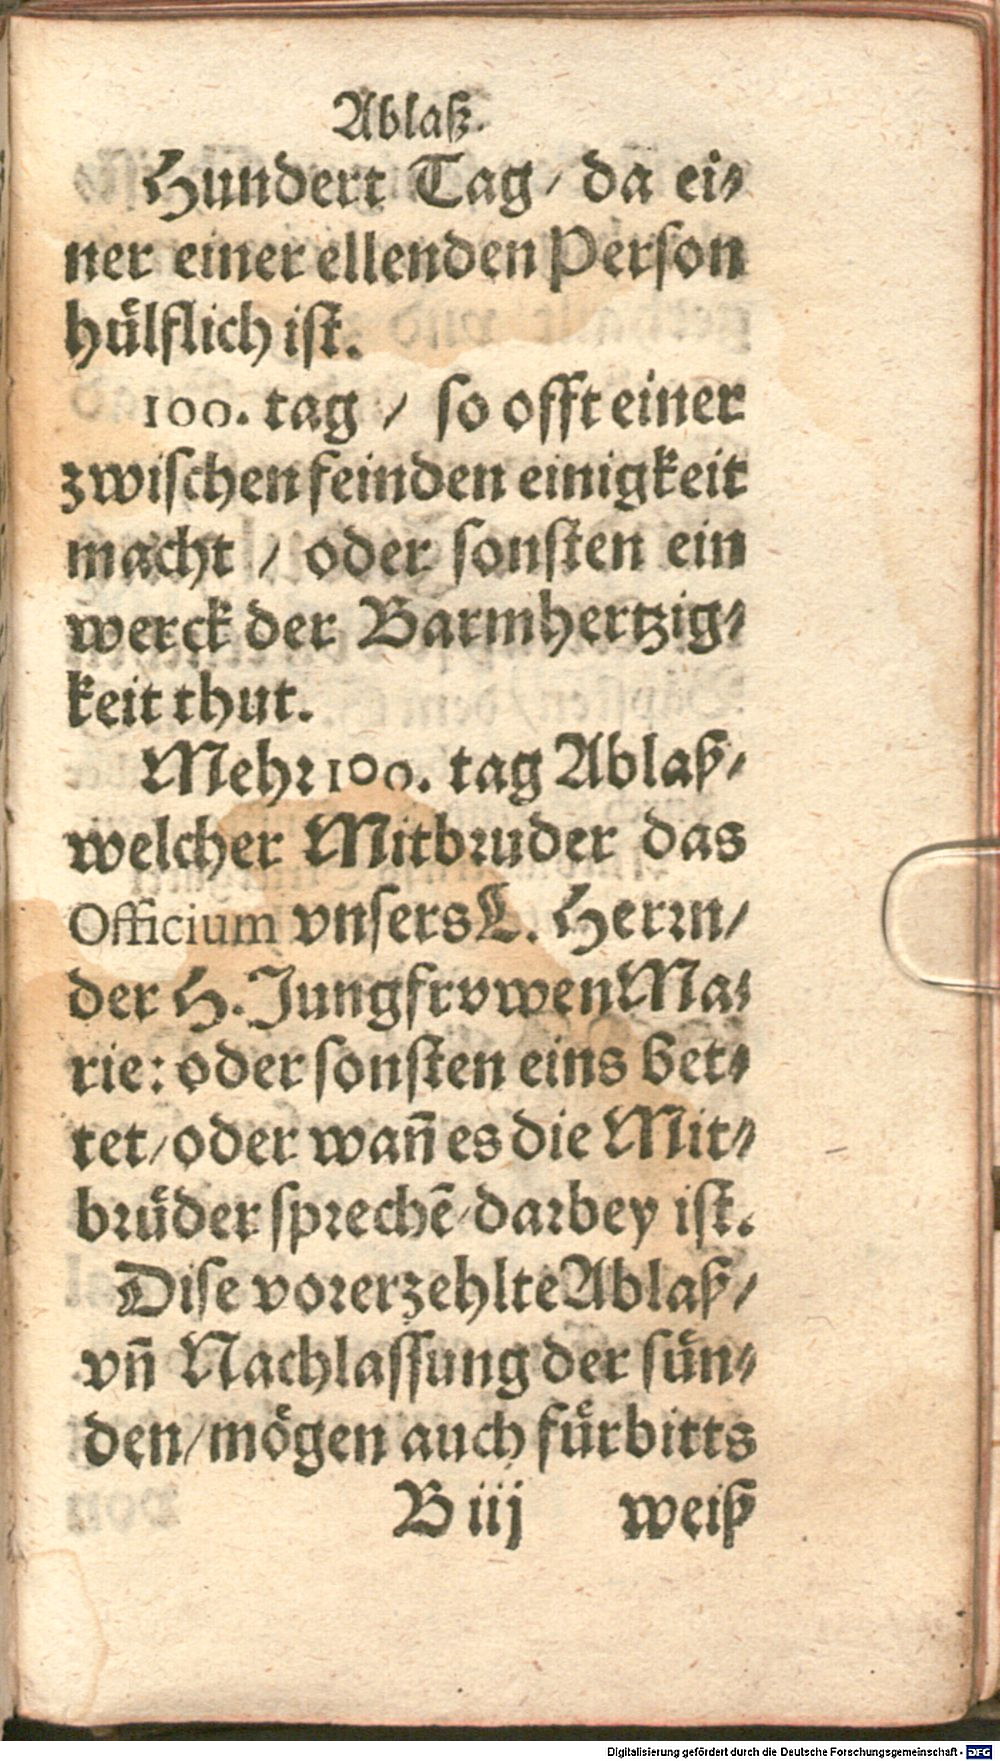 Ablaß.
Hundert Tag / da ei⸗
ner einer ellenden Person
hülflich ist.
100. tag / so offt einer
zwischen feinden einigkeit
macht / oder sonsten ein
werck der Barmhertzig⸗
keit thut.
Mehr 100. tag Ablaß /
welcher Mitbruder das
Officium vnsers L. Herrn /
der H. Jungfrvwen Ma⸗
rie: oder sonsten eins bet⸗
tet / oder wañ es die Mit⸗
brüder sprechẽ / darbey ist.
Dise vorerzehlte Ablaß /
vñ Nachlassung der sün⸗
den / mögen auch fürbitts
B iij weiß
Digitalisierung gefördert durch die Deutsche Forschungsgemeinschaft - DFG